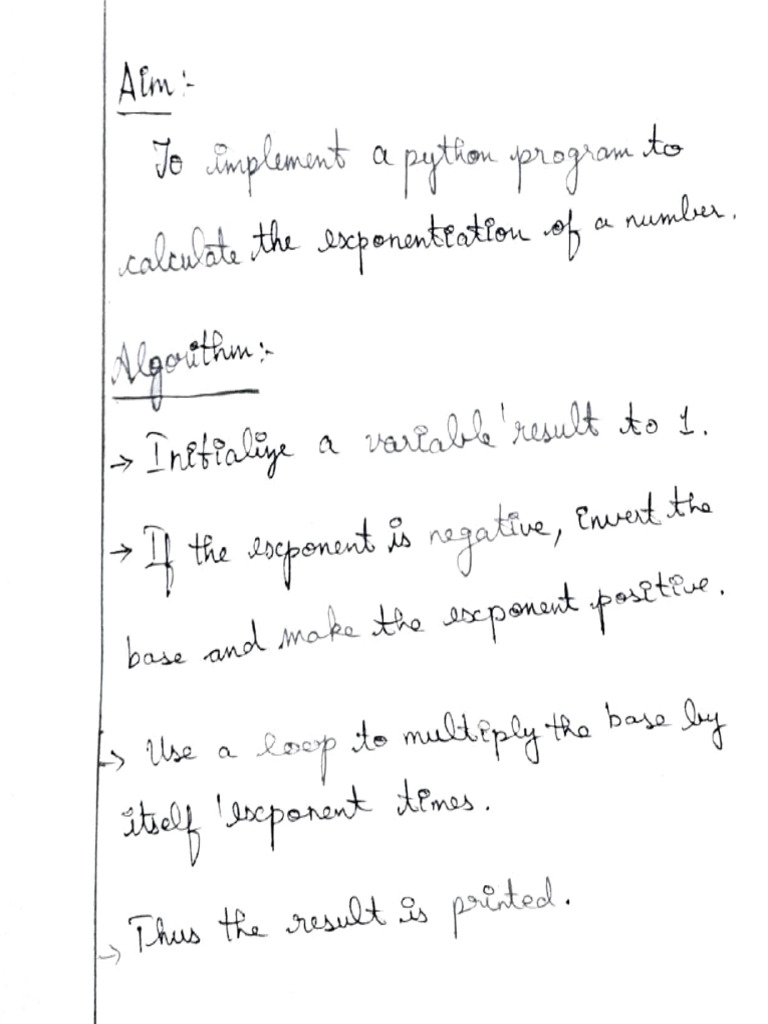 Aim :-
To implement a python program to
calculate the exponentiation of a number.
Algorithm :-
→ Initialize a variable 'result to 1.
→ If the exponent is negative, invert the
base and make the exponent positive.
→ Use a loop to multiply the base by
itself 'exponent times.
→ Thus the result is printed.